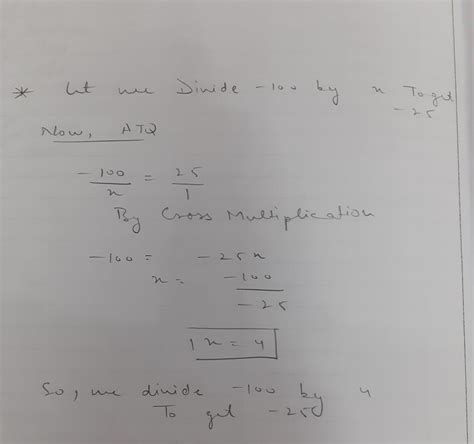 * Let we Divide -100 by x To get
-25
Now, ATQ
-100/x = 25/1
By Cross Multiplication
-100 = -25x
x = -100/-25
x = 4
So, we divide -100 by 4
To get -25